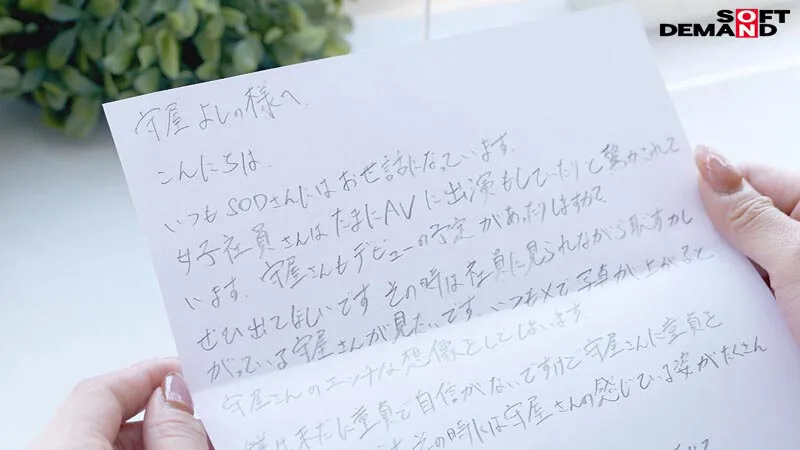 SOFT
DEMAND
守屋よしの様へ
こんにちは。
いつもSODさんにはお世話になっています。
女子社員さんはたまにAVに出演もしていたりと驚かされて
います。守屋さんもデビューの予定があったりしますか?
ぜひ出てほしいです。その時は社員に見られながら恥ずかし
がっている守屋さんが見たいです。いつもXで写真が上がると、
守屋さんのエッチな想像をしてしまいます
僕は未だに童貞で自信がないですけど守屋さんに童貞を
その時には守屋さんの感じている姿がたくさん